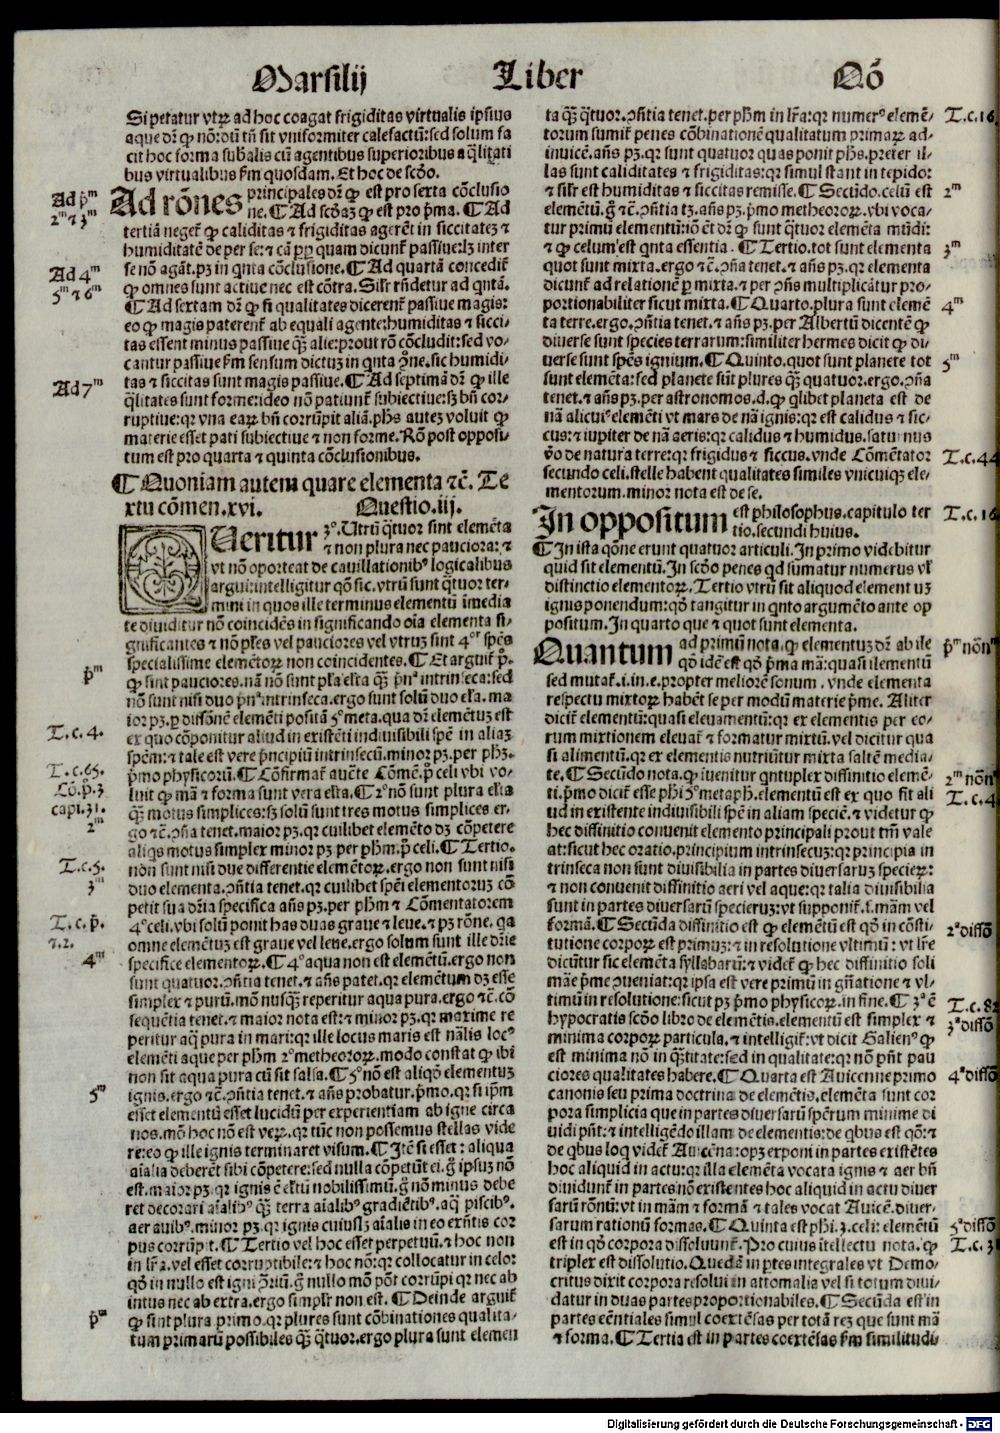 Marsilij Liber Qō
Si petatur vtrꝝ ad hoc coagat frigiditas virtualis ipsius
aque dr̄ ꝙ nō: oū tn̄ sit vniformiter calefactū: sed solum fa
cit hoc forma sub̄alis cū agentibus superioribus a q̄litati
bus virtualibus ẜm quosdam. Et hoc de scd̄o.
Ad rōnes principales dr̄ ꝙ est pro serta cōclusio
ne. ¶ Ad scd̄aꝫ ꝙ est pro p̄ma. ¶ Ad
tertiā neget̄ ꝙ caliditas ⁊ frigiditas agerēt in siccitateꝫ ⁊
humiditatē de per se: ⁊ cā ꝓpꝑ quam dicunt̄ passiue: lꝫ inter
se nō agāt. pꝫ in qnta cōclusione. ¶ Ad quartā concedit̄
ꝙ omnes sunt actiue nec est cōtra. Sil̄r rn̄detur ad qntā.
¶ Ad sextam dr̄ ꝙ si qualitates dicerent̄ passiue magis:
eo ꝙ magis paterent̄ ab equali agente: humiditas ⁊ sicci-
tas essent minus passiue qꝫ alie: prout rō cōcludit: sed vo-
cantur passiue ẜm sensum dictuꝫ in qnta ꝯ̄ne. sic humidi-
tas ⁊ siccitas sunt magis passiue. ¶ Ad septimā dr̄ ꝙ ille
q̄litates sunt forme: ideo nō patiunt̄ subiectiue: sꝫ bn̄ cor-
ruptiue: qꝛ vna earꝝ bn̄ corrūpit aliā. phs auteꝫ voluit ꝙ
materie esset pati subiectiue ⁊ non forme. Rō post opposi-
tum est pro quarta ⁊ quinta cōclusionibus.
¶ Quoniam autem quare elementa ⁊c̄. Te
xtu cōmen. xvi. Questio. iij.
Queritur 3º. Utrū q̄tuor sint elemēta
⁊ non plura nec pauciora: ⁊
vt nō oporteat de cauillationibꝰ logicalibus
argui: intelligitur qō sic. vtrū sunt q̄tuor ter-
mini in quos ille terminus elementū īmedia
te diuiditur nō coincidēs in significando oīa elementa si-
gnificantes ⁊ nō pl̄es vel pauciores vel vtruꝫ sint 4ᵒʳ spēs
specialissime elemētorꝝ non coincidentes. ¶ Et arguit̄ p̄.
ꝙ sint pauciores. nā nō sunt pl̄a el̄ta qꝫ pn̄ᵃ intrinseca: sed
nō sunt nisi duo pn̄ᵃ intrinseca. ergo sunt solū duo el̄a. ma
ior pꝫ. ꝑ diffōnē elemēti positā 5º meta. qua dr̄ elemētuꝫ est
ex quo cōponitur aliud in existenti indiuisibili spē in aliaꝫ
spēm: ⁊ tale est vere p̄ncipiū intrinsecū. minor pꝫ. per phꝫ.
p̄mo physicorū. ¶ Cōfirmat̄ aucte Cōmē. p̄ celi vbi vo-
luit ꝙ mā ⁊ forma sunt vera el̄ta. ¶ 2º nō sunt plura el̄ta
qꝫ motus simplices: sꝫ solū sunt tres motus simplices er-
go ⁊c̄. ꝯn̄a tenet. maior pꝫ. qꝛ cuilibet elemēto dꝫ cōpetere
aliqs motus simplex minor pꝫ per phm. p̄ celi. ¶ Tertio.
nōn sunt nisi due differentie elemētorꝝ. ergo non sunt nisi
duo elementa. ꝯn̄tia tenet. qꝛ cuilibet spēi elementoruꝫ cō
petit sua dr̄ia specifica añs pꝫ. per phm ⁊ Cōmentatorem
4º celi. vbi solū ponit has duas graue ⁊ leue. ⁊ pꝫ rōne. qa
omne elemētuꝫ est graue vel leue. ergo solum sunt ille dr̄ie
specifice elementorꝝ. ¶ 4º aqua non est elemētū. ergo non
sunt quatuor. ꝯn̄tia tenet. ⁊ añs patet. qꝛ elemētum dꝫ esse
simplex ⁊ purū. mō nusqꝫ reperitur aqua pura. ergo ⁊c̄. cō
sequētia tenet. ⁊ maior nota est: ⁊ minor pꝫ. qꝛ maxime re
peritur aq̄ pura in mari: qꝛ ille locus maris est nālis locꝰ
elemēti aque per phm 2º metheororꝝ. modo constat ꝙ ibi
non sit aqua pura cū sit salsa. ¶ 5º nō est aliqō elementuꝫ
ignis. ergo ⁊c̄. ꝯn̄tia tenet. ⁊ añs probatur. p̄mo. qꝛ si ip̄m
esset elementū esset lucidū per experientiam ab igne circa
nos. mō hoc nō est veꝝ. qꝛ tūc non possemus stellas vide
re: eo ꝙ ille ignis terminaret visum. ¶ Itē si esset: aliqua
aīalia deberēt sibi cōpetere: sed nulla cōpetūt ei. g̊ ipsuꝫ nō
est. maior pꝫ. qꝛ ignis ē el̄tū nobilissimū. g̊ nō minus debe
ret decorari aīalibꝰ qꝫ terra aīalibꝰ gradiētibꝰ. aq̄ piscibꝰ.
aer auibꝰ. minor pꝫ. qꝛ ignis cuiuslꝫ aīalis in eo exn̄tis cor
pus corrūpit. ¶ Tertio vel hoc esset perpetuū. ⁊ hoc non
in lr̄a. vel esset corruptibile: ⁊ hoc nō: qꝛ collocatur in celo:
qō in nullo est igni ꝯriū. g̊ nullo mō pōt corrūpi qꝛ nec ab
intus nec ab extra. ergo simplr̄ non est. ¶ Deinde arguit̄
ꝙ sint plura. primo. qꝛ plures sunt cōbinationes qualita-
tum primarū possibiles qꝫ q̄tuor. ergo plura sunt elemen
Ad p̄ᵐ
2ᵐ ⁊ 3ᵐ
Ad 4ᵐ
5ᵐ ⁊ 6ᵐ
Ad 7ᵐ
p̄ᵐ
T. c. 4.
T. c. 65.
Cō. p̄. 3
capi. 31.
2ᵐ
T. c. 5.
3ᵐ
T. c. p̄.
⁊. 2.
4ᵐ
5ᵐ
p̄ᵐ
ta qꝫ q̄tuor. ꝯn̄tia tenet. per phm in lr̄a: qꝛ numerꝰ elemē-
torum sumit̄ penes cōbinationē qualitatum primarꝝ ad-
inuicē. añs pꝫ. qꝛ sunt quatuor quas ponit phs. preter il-
las sunt caliditates ⁊ frigiditas: qꝛ simul stant in tepido:
⁊ sil̄r est humiditas ⁊ siccitas remisse. ¶ Secūdo. celū est
elemētū. g̊ ⁊c̄. ꝯn̄tia tꝫ. añs pꝫ. p̄mo metheororꝝ. vbi voca-
tur primū elementū: iō ēt dr̄ ꝙ sunt q̄tuor elemēta mūdi:
⁊ ꝙ celum est qnta essentia. ¶ Tertio. tot sunt elementa
quot sunt mixta. ergo ⁊c̄. ꝯn̄a tenet. ⁊ añs pꝫ. qꝛ elementa
dicunt̄ ad relationē ꝑ mixta. ⁊ per ꝯn̄s multiplicātur pro-
portionabiliter sicut mixta. ¶ Quarto. plura sunt elemē
ta terre. ergo. ꝯn̄tia tenet. ⁊ añs pꝫ. per Albertū dicentē ꝙ
diuerse sunt species terrarum: similiter hermes dicit ꝙ di-
uerse sunt spēs ignium. ¶ Quinto. quot sunt planete tot
sunt elemēta: sed planete sūt plures qꝫ quatuor. ergo. ꝯn̄a
tenet. ⁊ añs pꝫ. per astronomos. d. ꝙ qlibet planeta est de
nā alicuiꝰ elemēti vt mars de nā ignis: qꝛ est calidus ⁊ sic-
cus: ⁊ iupiter de nā aeris: qꝛ calidus ⁊ humidus. saturnus
v̊o de natura terre: qꝛ frigidus ⁊ siccus. vnde Cōmētator
secundo celi. stelle habent qualitates similes vnicuiqꝫ ele-
mentorum. minor nota est de se.
In oppositum est philosophus. capitulo ter
tio. secundi huius.
¶ In ista qōne erunt quatuor articuli. In primo videbitur
quid sit elementū. In scd̄o penes qd sumatur numerus vl̄
distinctio elementorꝝ. Tertio vtrū sit aliquod elementuꝫ
ignis ponendum: qō tangitur in qnto argumēto ante op
positum. In quarto que ⁊ quot sunt elementa.
Quantum ad primū nota. ꝙ elementuꝫ dr̄ ab ile
qō idē est qō p̄ma mā: quasi ilementū
sed mutat̄. i. in. e. propter meliorē sonum. vnde elementa
respectu mixtorꝝ habēt se per modū materie p̄me. Aliter
dicit̄ elementū: quasi eleuamentū: qꝛ ex elementis per eo-
rum mixtionem eleuat̄ ⁊ formatur mixtū. vel dicitur qua
si alimentū. qꝛ ex elementis nutriūtur mixta saltē media-
te. ¶ Secūdo nota. ꝙ iuenitur qntuplex diffinitio elemē-
ti. p̄mo dicit̄ esse phi 5º metaph. elementū est ex quo fit ali
ud in existente indiuisibili spē in aliam speciē. ⁊ videtur ꝙ
hec diffinitio conuenit elemento principali prout tm̄ vale
at: sicut hec oratio. principium intrinsecuꝫ: qꝛ principia in
trinseca non sunt diuisibilia in partes diuersaruꝫ specieꝝ:
⁊ non conuenit diffinitio aeri vel aque: qꝛ talia diuisibilia
sunt in partes diuersarū specieruꝫ: vt supponit̄. s̄. mām vel
formā. ¶ Secūda diffinitio est ꝙ elemētū est qō in cōsti-
tutione corporꝝ est primuꝫ: ⁊ in resolutione vltimū: vt lr̄e
dicūtur sic elemēta syllabarū: ⁊ videt̄ ꝙ hec diffinitio soli
māe p̄me ꝯueniat: qꝛ ipsa est vere primū in gn̄atione ⁊ vl-
timū in resolutione: sicut pꝫ p̄mo physicorꝝ. in fine. ¶ 3ª ē
hypocratis scd̄o libro de elemētis. elementū est simplex ⁊
minima corporꝝ particula. ⁊ intelligit̄: vt dicit Galienꝰ ꝙ
est minima nō in q̄titate: sed in qualitate: qꝛ nō pn̄t pau
ciores qualitates habere. ¶ Quarta est Auicenne primo
canonis seu prima doctrina de elemētis. elemēta sunt cor
pora simplicia que in partes diuersarū spērum minime di
uidi pn̄t: ⁊ intelligēdo illam de elementis: de qbus est qō: ⁊
de qbus loq videt̄ Auicēna: opꝫ exponi in partes existētes
hoc aliquid in actu: qꝛ illa elemēta vocata ignis ⁊ aer bn̄
diuidunt̄ in partes nō existentes hoc aliquid in actu diuer
sarū rōnū: vt in mām ⁊ formā ⁊ tales vocat Auicē. diuer-
sarum rationū formas. ¶ Quinta est phi. 3. celi: elemētū
est in qō corpora dissoluunt̄. Pro cuius ītellectu nota. ꝙ
triplex est dissolutio. Quedā in ptes integrales vt Demo-
critus dixit corpora resolui in atthomalia vel si totum diui-
datur in duas partes proportionabiles. ¶ Secūda est in
partes eēntiales simul coextēsas per totā reꝫ que sunt mā
⁊ forma. ¶ Tertia est in partes coextēsas ẜm similitudi
T. c. 16
2ᵐ
3ᵐ
4ᵐ
5ᵐ
T. c. 44
T. c. 16
p̄ᵐ nōnᵐ
2ᵐ nōnᵐ
T. c. 4
2ª diffō
T. c. 82
3ª diffō
4ª diffō
5ª diffō
T. c. 3
Digitalisierung gefördert durch die Deutsche Forschungsgemeinschaft - DFG